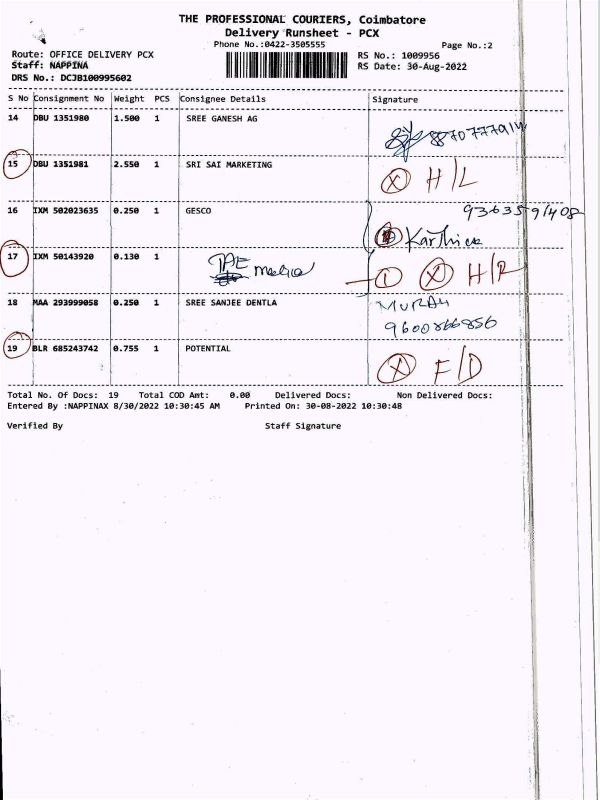 THE PROFESSIONAL COURIERS, Coimbatore
Delivery Runsheet - PCX
Phone No.:0422-3505555 Page No.:2
Route: OFFICE DELIVERY PCX RS No.: 1009956
Staff: NAPPINA RS Date: 30-Aug-2022
DRS No.: DCJB100995602
S No Consignment No Weight PCS Consignee Details Signature
14 DBU 1351980 1.500 1 SREE GANESH AG
15 DBU 1351981 2.550 1 SRI SAI MARKETING X H/L
16 IXM 502023635 0.250 1 GESCO 9363591408
Karthick
17 IXM 50143920 0.130 1 media 1 X H/R
18 MAA 293999058 0.250 1 SREE SANJEE DENTLA MURALI
9600866856
19 BLR 685243742 0.755 1 POTENTIAL X F/D
Total No. Of Docs: 19 Total COD Amt: 0.00 Delivered Docs: Non Delivered Docs:
Entered By :NAPPINAX 8/30/2022 10:30:45 AM Printed On: 30-08-2022 10:30:48
Verified By Staff Signature